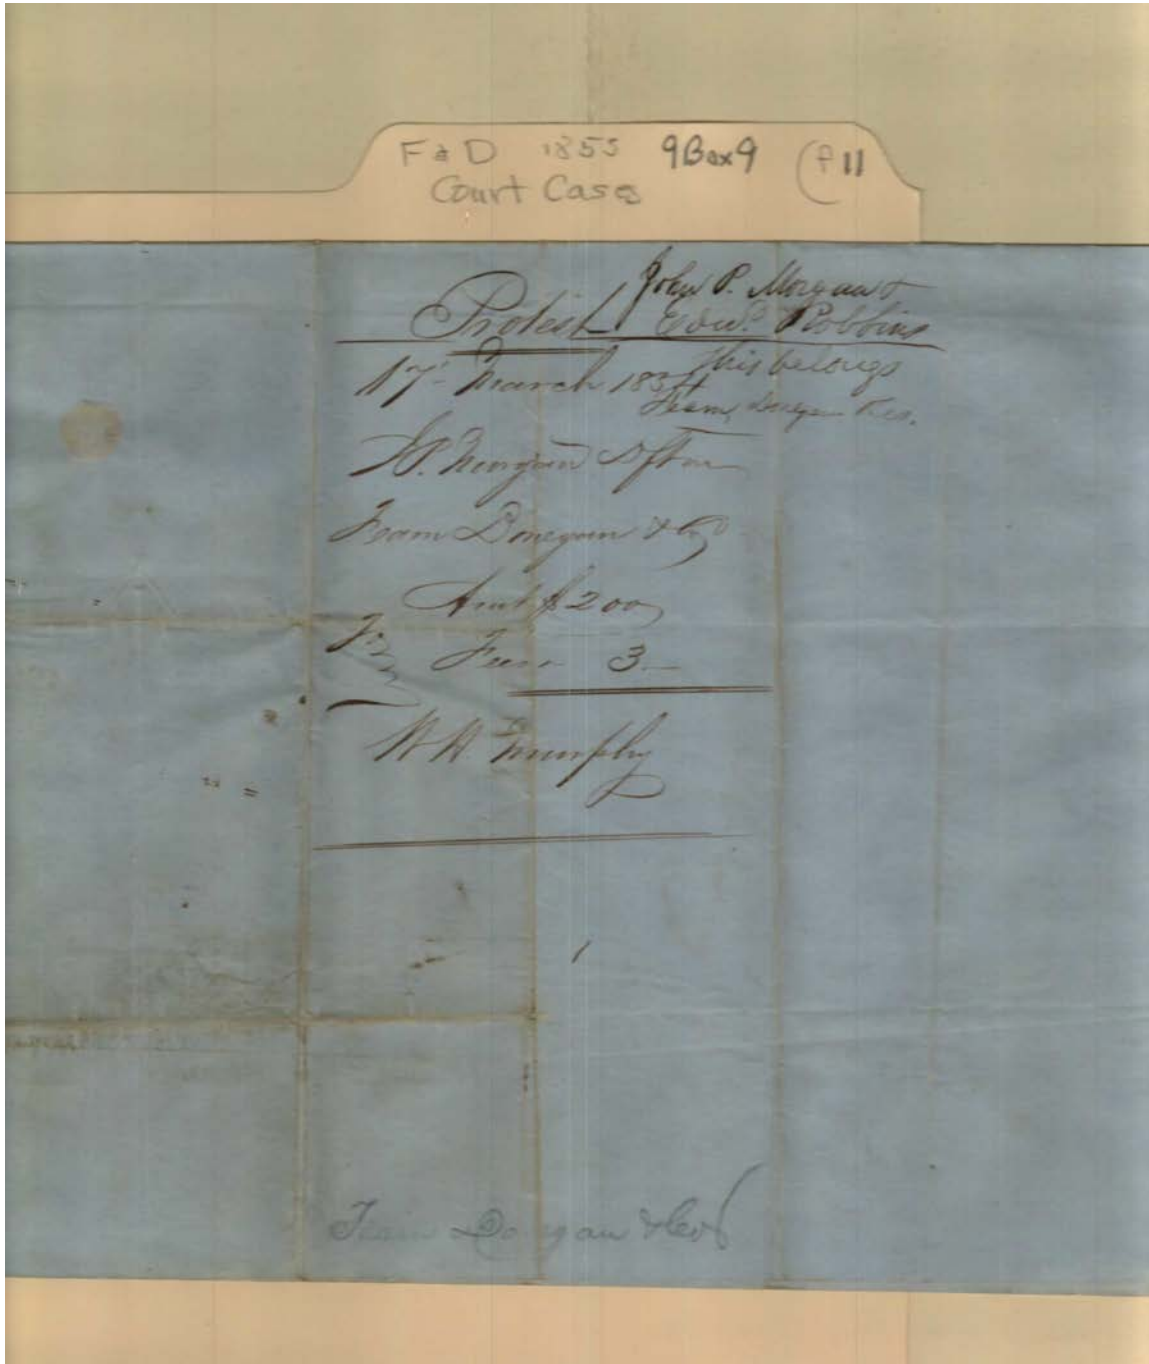 F & D 1855 9Box9 (P 11
Court Cases
John P. Morgan &
Protest Edwd. Robbins
17th March 1854 This belongs
Fearn, Donegan & Co.
J. P. Morgan
Fearn Donegan & Co
Amt $ 200
Fees 3.—
W H Murphy
Fearn Donegan & Co